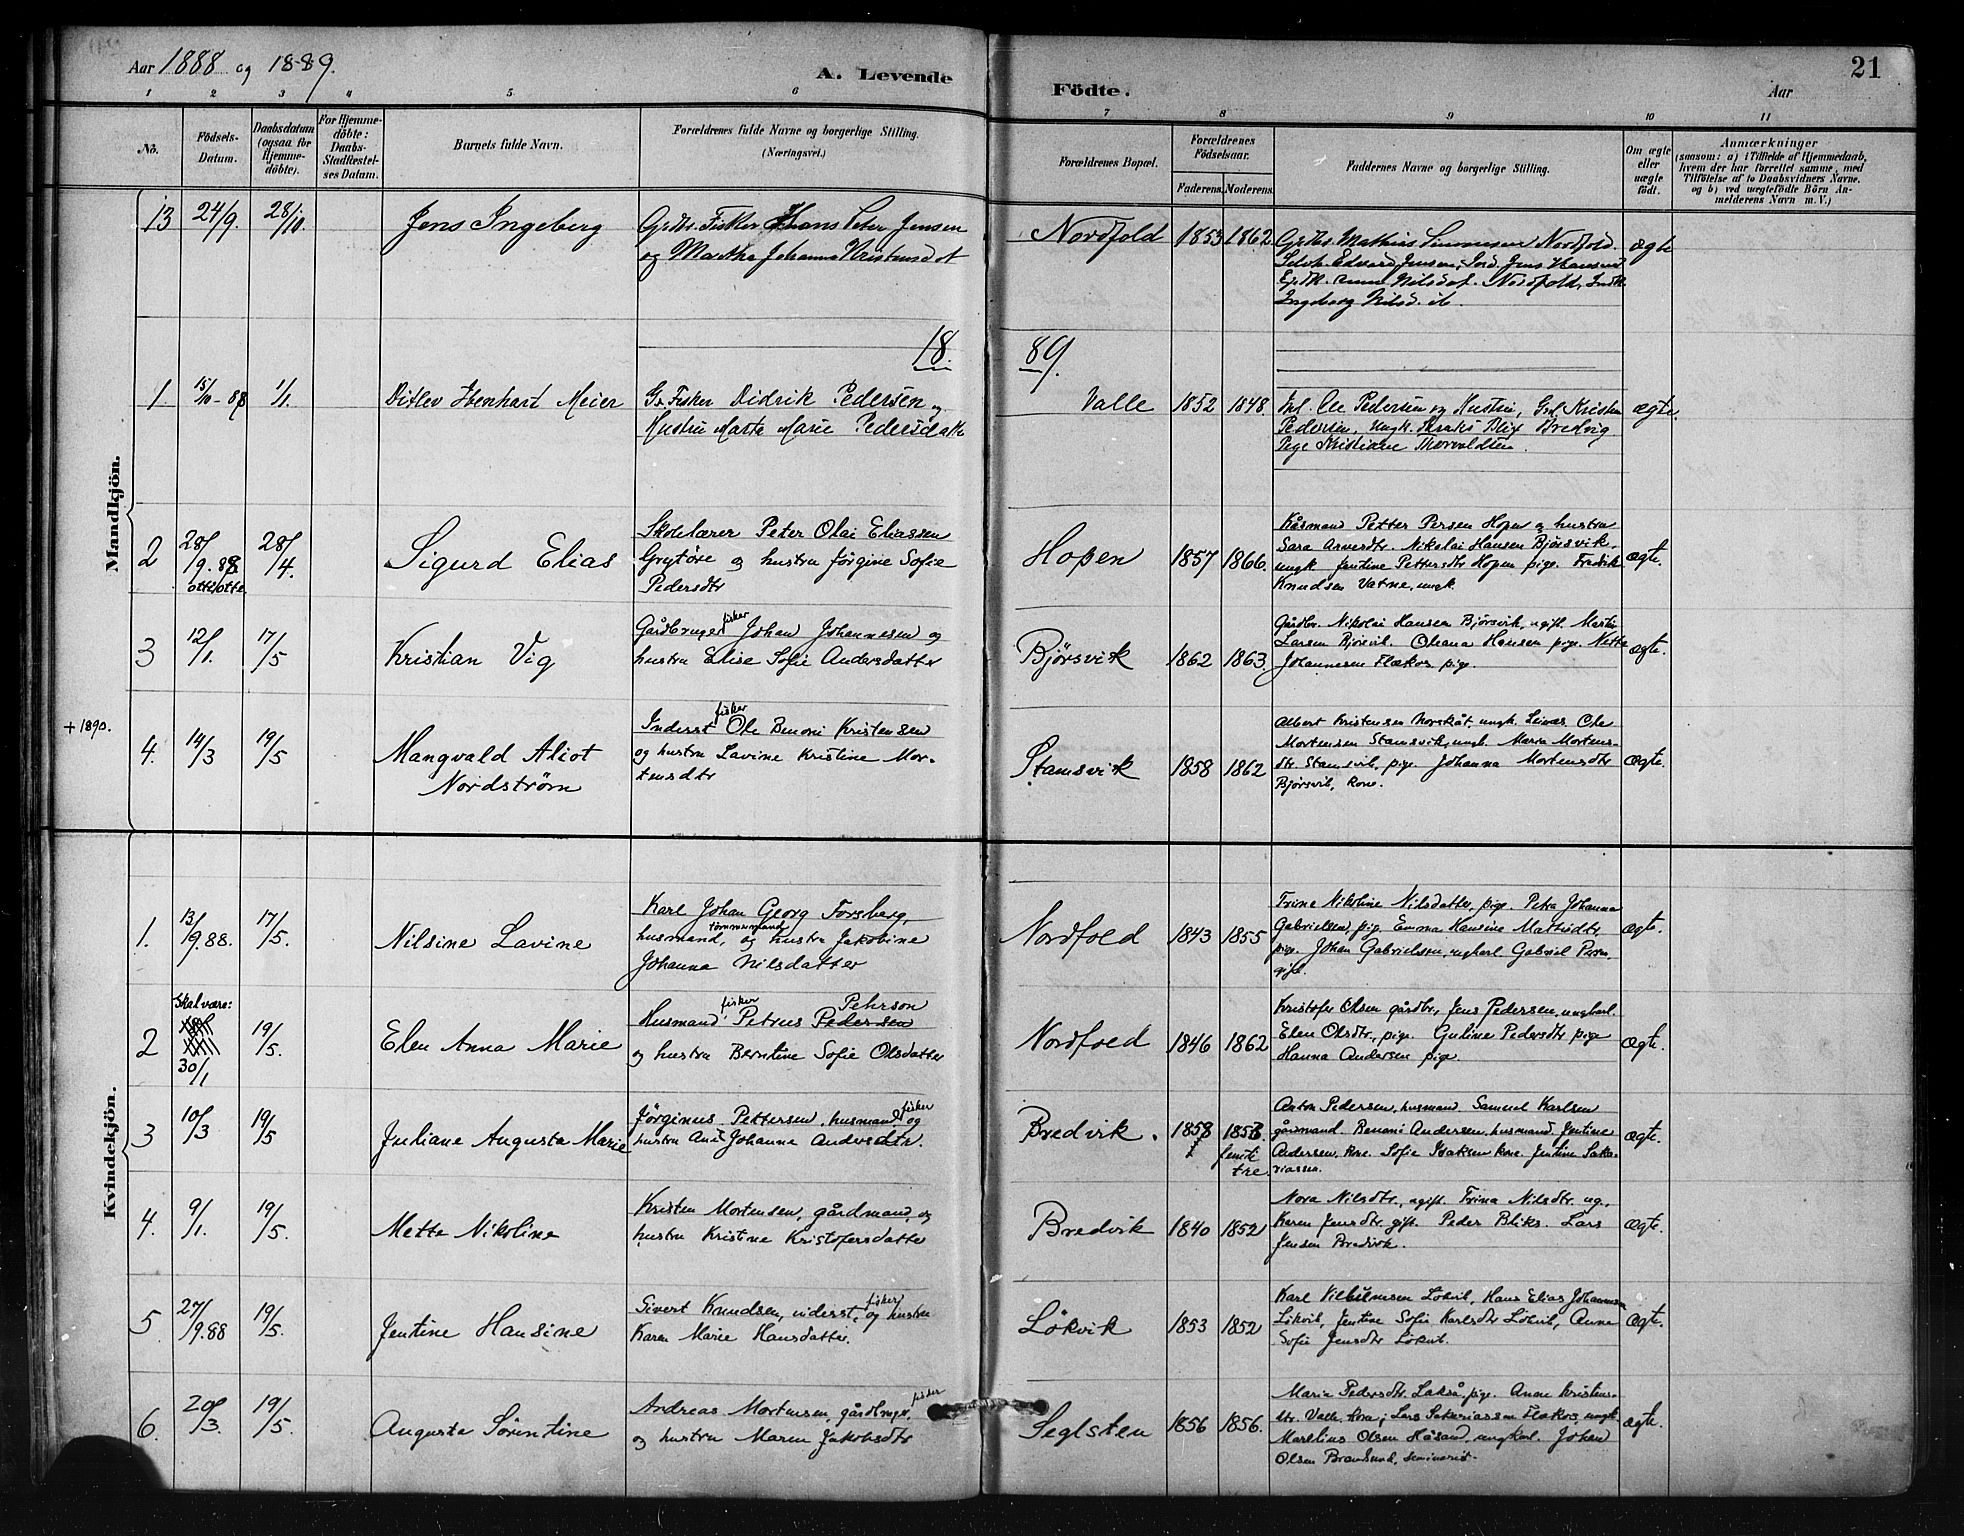 Aar 1888 og 1889.
A. Levende
Födte.
Aar
21
1 2 3 4 5 6 7 8 9 10 11
No.
Födsels-
Datum.
Daabsdatum
(ogsaa for
Hjemme-
döbte).
For Hjemme-
döbte:
Daabs-
Stadfæstel-
ses Datum.
Barnets fulde Navn.
Forældrenes fulde Navne og borgerlige Stilling.
(Næringsvei.)
Forældrenes Bopæl.
Forældrenes
Födselsaar.
Faderens. Moderens.
Faddernes Navne og borgerlige Stilling.
Om ægte
eller
uægte
födt.
Anmærkninger
(saasom: a) i Tilfælde af Hjemmedaab,
hvem der har forrettet samme, med
Tilföielse af to Daabsvidners Navne,
og b) ved uægtefödte Börn An-
melderens Navn m. V.)
Mandkjön.
13 24/9. 28/10. Jens Ingeberg
Grdbr. Fisker Hans Peter Jensen
og Martha Johanna Kristensd
Nordfold 1853 1862
Grdbr. Mathias Simonsen Nordfold.
Edvard Jensen, Jens Hansen
Anne Nilsdat. Nordfold,
Ingeborg Nilsd. ib
ægte
18
89.
1 15/10-88 1/1. Ditlev Ebenhart Meier
G. Fisker Didrik Pedersen og
Hustru Marta Marie Pedersdatte
Valle 1852 1848
Ole Pedersen og Hustru, Kristen
Pedersen, Ungk. Blix Bredvig
Pige Kristiane Thorvaldsen.
ægte.
2 28/9.88 otteotte 28/4. Sigurd Elias
Skolelærer Peter Olai Eliassen
Grytöre og hustru Jörgine Sofie
Pedersdtr
Hopen 1857 1866.
Kåsmand Petter Persen Hopen og hustru
Sara Arnesdtr. Nikolai Hansen Bjørsvik,
ungk Jentine Pettersdtr Hopen pige. Fredrik
Knudsen Vatne, ungk.
ægte.
3 12/1. 17/5 Kristian Vig
Gårdbruger fisker Johan Johannesen og
hustru Elise Sofie Andersdatter
Bjørsvik 1862 1863.
Gårdbr. Nikolai Hansen Bjørsvik, ugift. Martin
Larsen Bjørsvik. Oleana Hansen pige Mette
Johannesen Flækos pige.
ægte.
+ 1890.
4. 14/3 19/5 Mangvald Aliot
Nordstrøm
Inderst fisker Ole Benoni Kristensen
og hustru Lavine Kristine Mor-
tensdtr
Stamsvik 1858 1862
Albert Kristensen Norskåt, ungk. Ole
Mortensen Stamsvik, ungk. Maria Mortens-
dtr Stamsvik, pige Johanna Mortensdtr
Bjørsvik, kone.
ægte.
Kvindekjön.
1. 13/9.88. 17/5. Nilsine Lavine
Karl Johan Georg Forsberg,
husmand, tømmermand og hustru Jakobine
Johanna Nilsdatter
Nordfold 1843 1855
Trine Nikoline Nilsdatter, pige. Petra Johanna
Gabrielsen, pig. Emma Hansine Matisdtr
pige. Johan Gabrielsen, ungkarl. Gabriel Persen,
gift.
ægte.
2 Skal være: 30/1 19/5. Elen Anna Marie
Husmand fisker Petrus Pedersen Pehrson
og hustru Berntine Sofie Olsdatter
Nordfold 1846 1862
Kristofer Olsen gårdbr, Jens Pedersen, ungkarl.
Elen Olsdtr, pige. Gutine Pedersdtr pige
Hanna Andersen pige
ægte.
3 10/3 19/5 Juliane Augusta Marie
Jörginus Pettersen, husmand fisker og
hustru Ane Johanna Andersdtr.
Bredvik. 1858 1853 femti tre
Anton Pedersen, husmand Samuel Karlsen
gårdmand. Benoni Andersen, husmand, Jentine
Andersen, kone. Sofie Isaksen kone Jentine Saka-
riassen.
ægte.
4. 9/1. 19/5. Mette Nikoline
Kristen Mortensen, gårdmand, og
hustru Kristine Kristofersdatter
Bredvik 1840 1852
Nora Nilsdtr., ugift. Trina Nilsdtr. ug.
Karen Jensdtr. gift. Peder Bliks. Lars
Jensen Bredvik.
ægte.
5. 27/9.88 19/5. Jentine Hansine
Sivert Knudsen, inderst, fisker og hustru
Karen Marie Hansdatter.
Lökvik 1853 1852
Karl Vilhelmsen Lökvik, Hans Elias Johannesen
Lökvik, Jentine Sofie Karlsdtr Lökvik, Anne
Sofie Jensdtr Lökvik.
ægte.
6. 20/3. 19/5. Augusta Sörentine
Andreas Mortensen, gårdbruger, fisker
og hustru Maren Jakobsdtr
Seglsten 1856 1856.
Marie Pedersdtr. Lakså, pige. Anne Kristens-
dtr. Valle, kone; Lars Sakariassen Flækos, ungk.
Marelius Olsen Håsand, ungkarl. Johan
Olsen Brandsund, seminarist.
ægte.